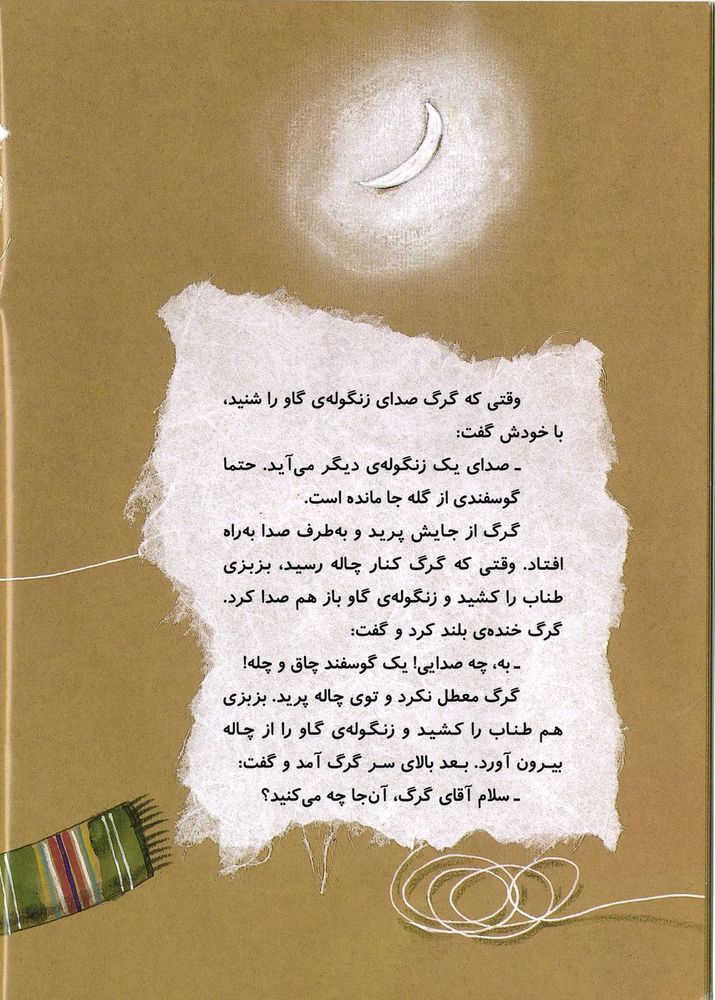 وقتی که گرگ صدای زنگوله‌ی گاو را شنید،
با خودش گفت:
ـ صدای یک زنگوله‌ی دیگر می‌آید. حتما
گوسفندی از گله جا مانده است.
گرگ از جایش پرید و به‌طرف صدا به‌راه
افتاد. وقتی که گرگ کنار چاله رسید، بزبزی
طناب را کشید و زنگوله‌ی گاو باز هم صدا کرد.
گرگ خنده‌ی بلند کرد و گفت:
ـ به، چه صدایی! یک گوسفند چاق و چله!
گرگ معطل نکرد و توی چاله پرید. بزبزی
هم طناب را کشید و زنگوله‌ی گاو را از چاله
بیرون آورد. بعد بالای سر گرگ آمد و گفت:
ـ سلام آقای گرگ، آن‌جا چه می‌کنید؟